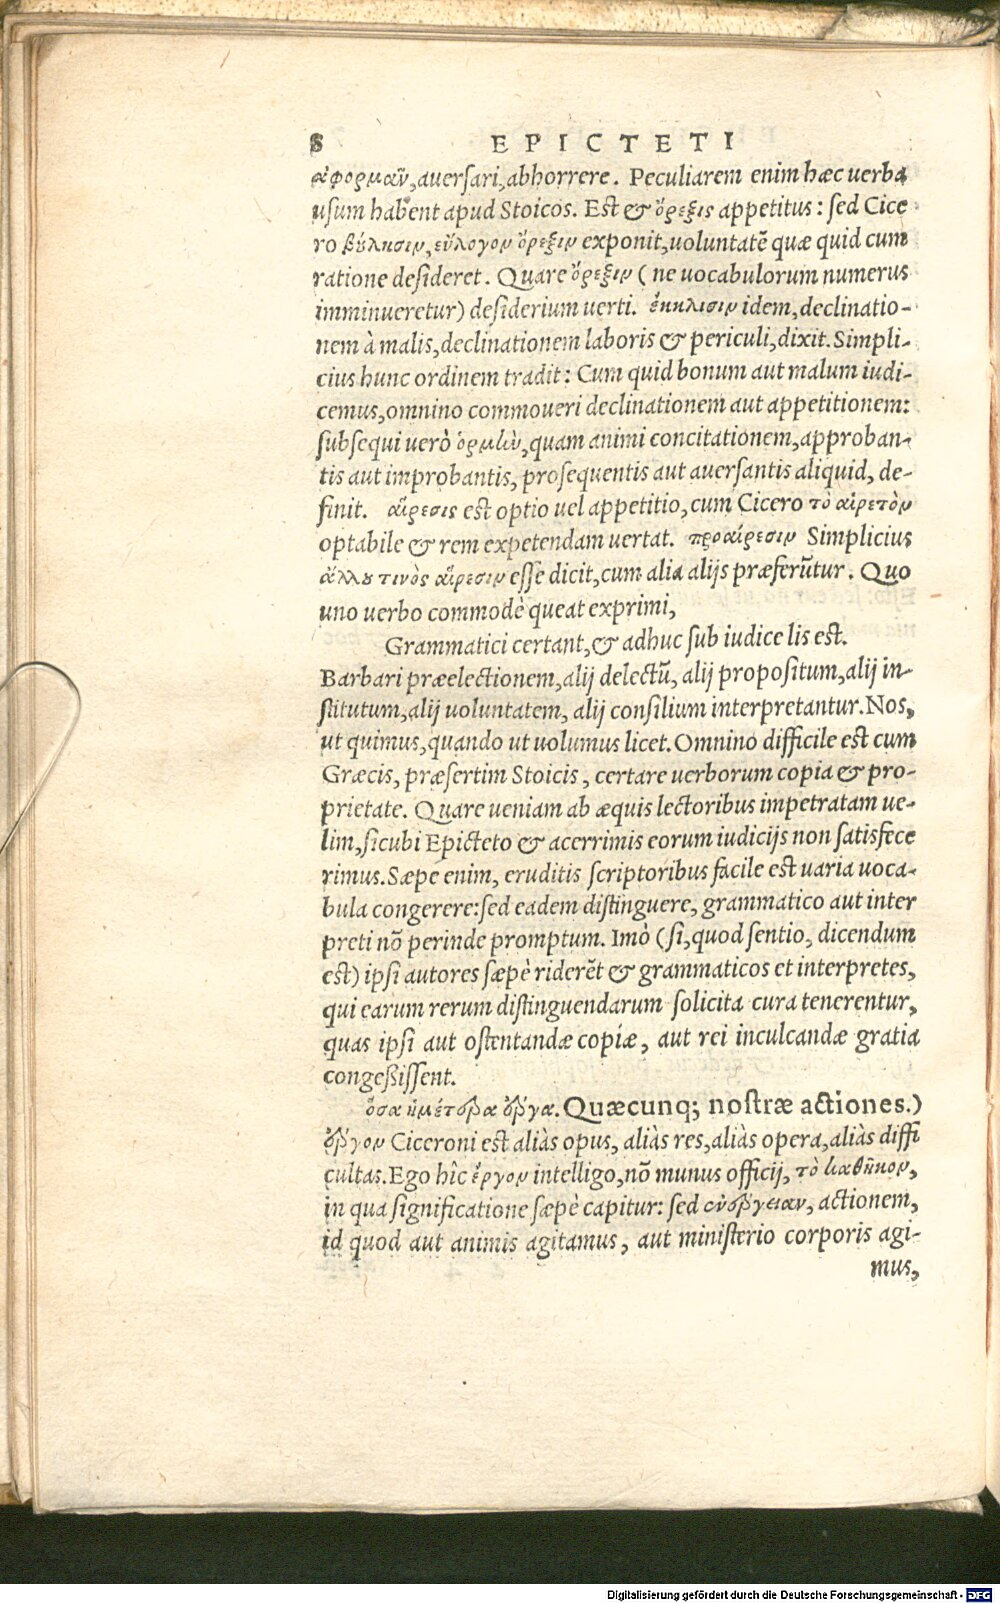 8 EPICTETI
ἀφορμᾶν, aversari, abhorrere. Peculiarem enim hæc uerba
usum habent apud Stoicos. Est & ὄρεξις appetitus: sed Cice
ro βούλησιν, εὔλογον ὄρεξιν exponit, uoluntatẽ quæ quid cum
ratione desideret. Quare ὄρεξιν (ne uocabulorum numerus
imminueretur) desiderium uerti. ἔκκλισιν idem, declinatio-
nem à malis, declinationem laboris & periculi, dixit. Simpli-
cius hunc ordinem tradit: Cum quid bonum aut malum iudi-
cemus, omnino commoueri declinationem aut appetitionem:
subsequi uerò ὁρμὴν, quam animi concitationem, approban-
tis aut improbantis, prosequentis aut auersantis aliquid, de-
finit. αἵρεσις est optio uel appetitio, cum Cicero τὸ αἱρετὸν
optabile & rem expetendam uertat. προαίρεσιν Simplicius
ἄλλου τινὸς αἵρεσιν esse dicit, cum alia alijs præferũtur. Quo
uno uerbo commodè queat exprimi,
Grammatici certant, & adhuc sub iudice lis est.
Barbari præelectionem, alij delectũ, alij propositum, alij in-
stitutum, alij uoluntatem, alij consilium interpretantur. Nos,
ut quimus, quando ut uolumus licet. Omnino difficile est cum
Græcis, præsertim Stoicis, certare uerborum copia & pro-
prietate. Quare ueniam ab æquis lectoribus impetratam ue-
lim, sicubi Epicteto & acerrimis eorum iudicijs non satisfece
rimus. Sæpe enim, eruditis scriptoribus facile est uaria uoca-
bula congerere: sed eadem distinguere, grammatico aut inter
preti nõ perinde promptum. Imò (si, quod sentio, dicendum
est) ipsi autores sæpè riderẽt & grammaticos et interpretes,
qui earum rerum distinguendarum solicita cura tenerentur,
quas ipsi aut ostentandæ copiæ, aut rei inculcandæ gratia
congeßissent.
ὅσα ἡμέτερα ἔργα. Quæcunq; nostræ actiones.)
ἔργον Ciceroni est aliàs opus, aliàs res, aliàs opera, aliàs diffi
cultas. Ego hîc ἔργον intelligo, nõ munus officij, τὸ καθῆκον,
in qua significatione sæpè capitur: sed ἐνέργειαν, actionem,
id quod aut animis agitamus, aut ministerio corporis agi-
mus,
Digitalisierung gefördert durch die Deutsche Forschungsgemeinschaft - DFG